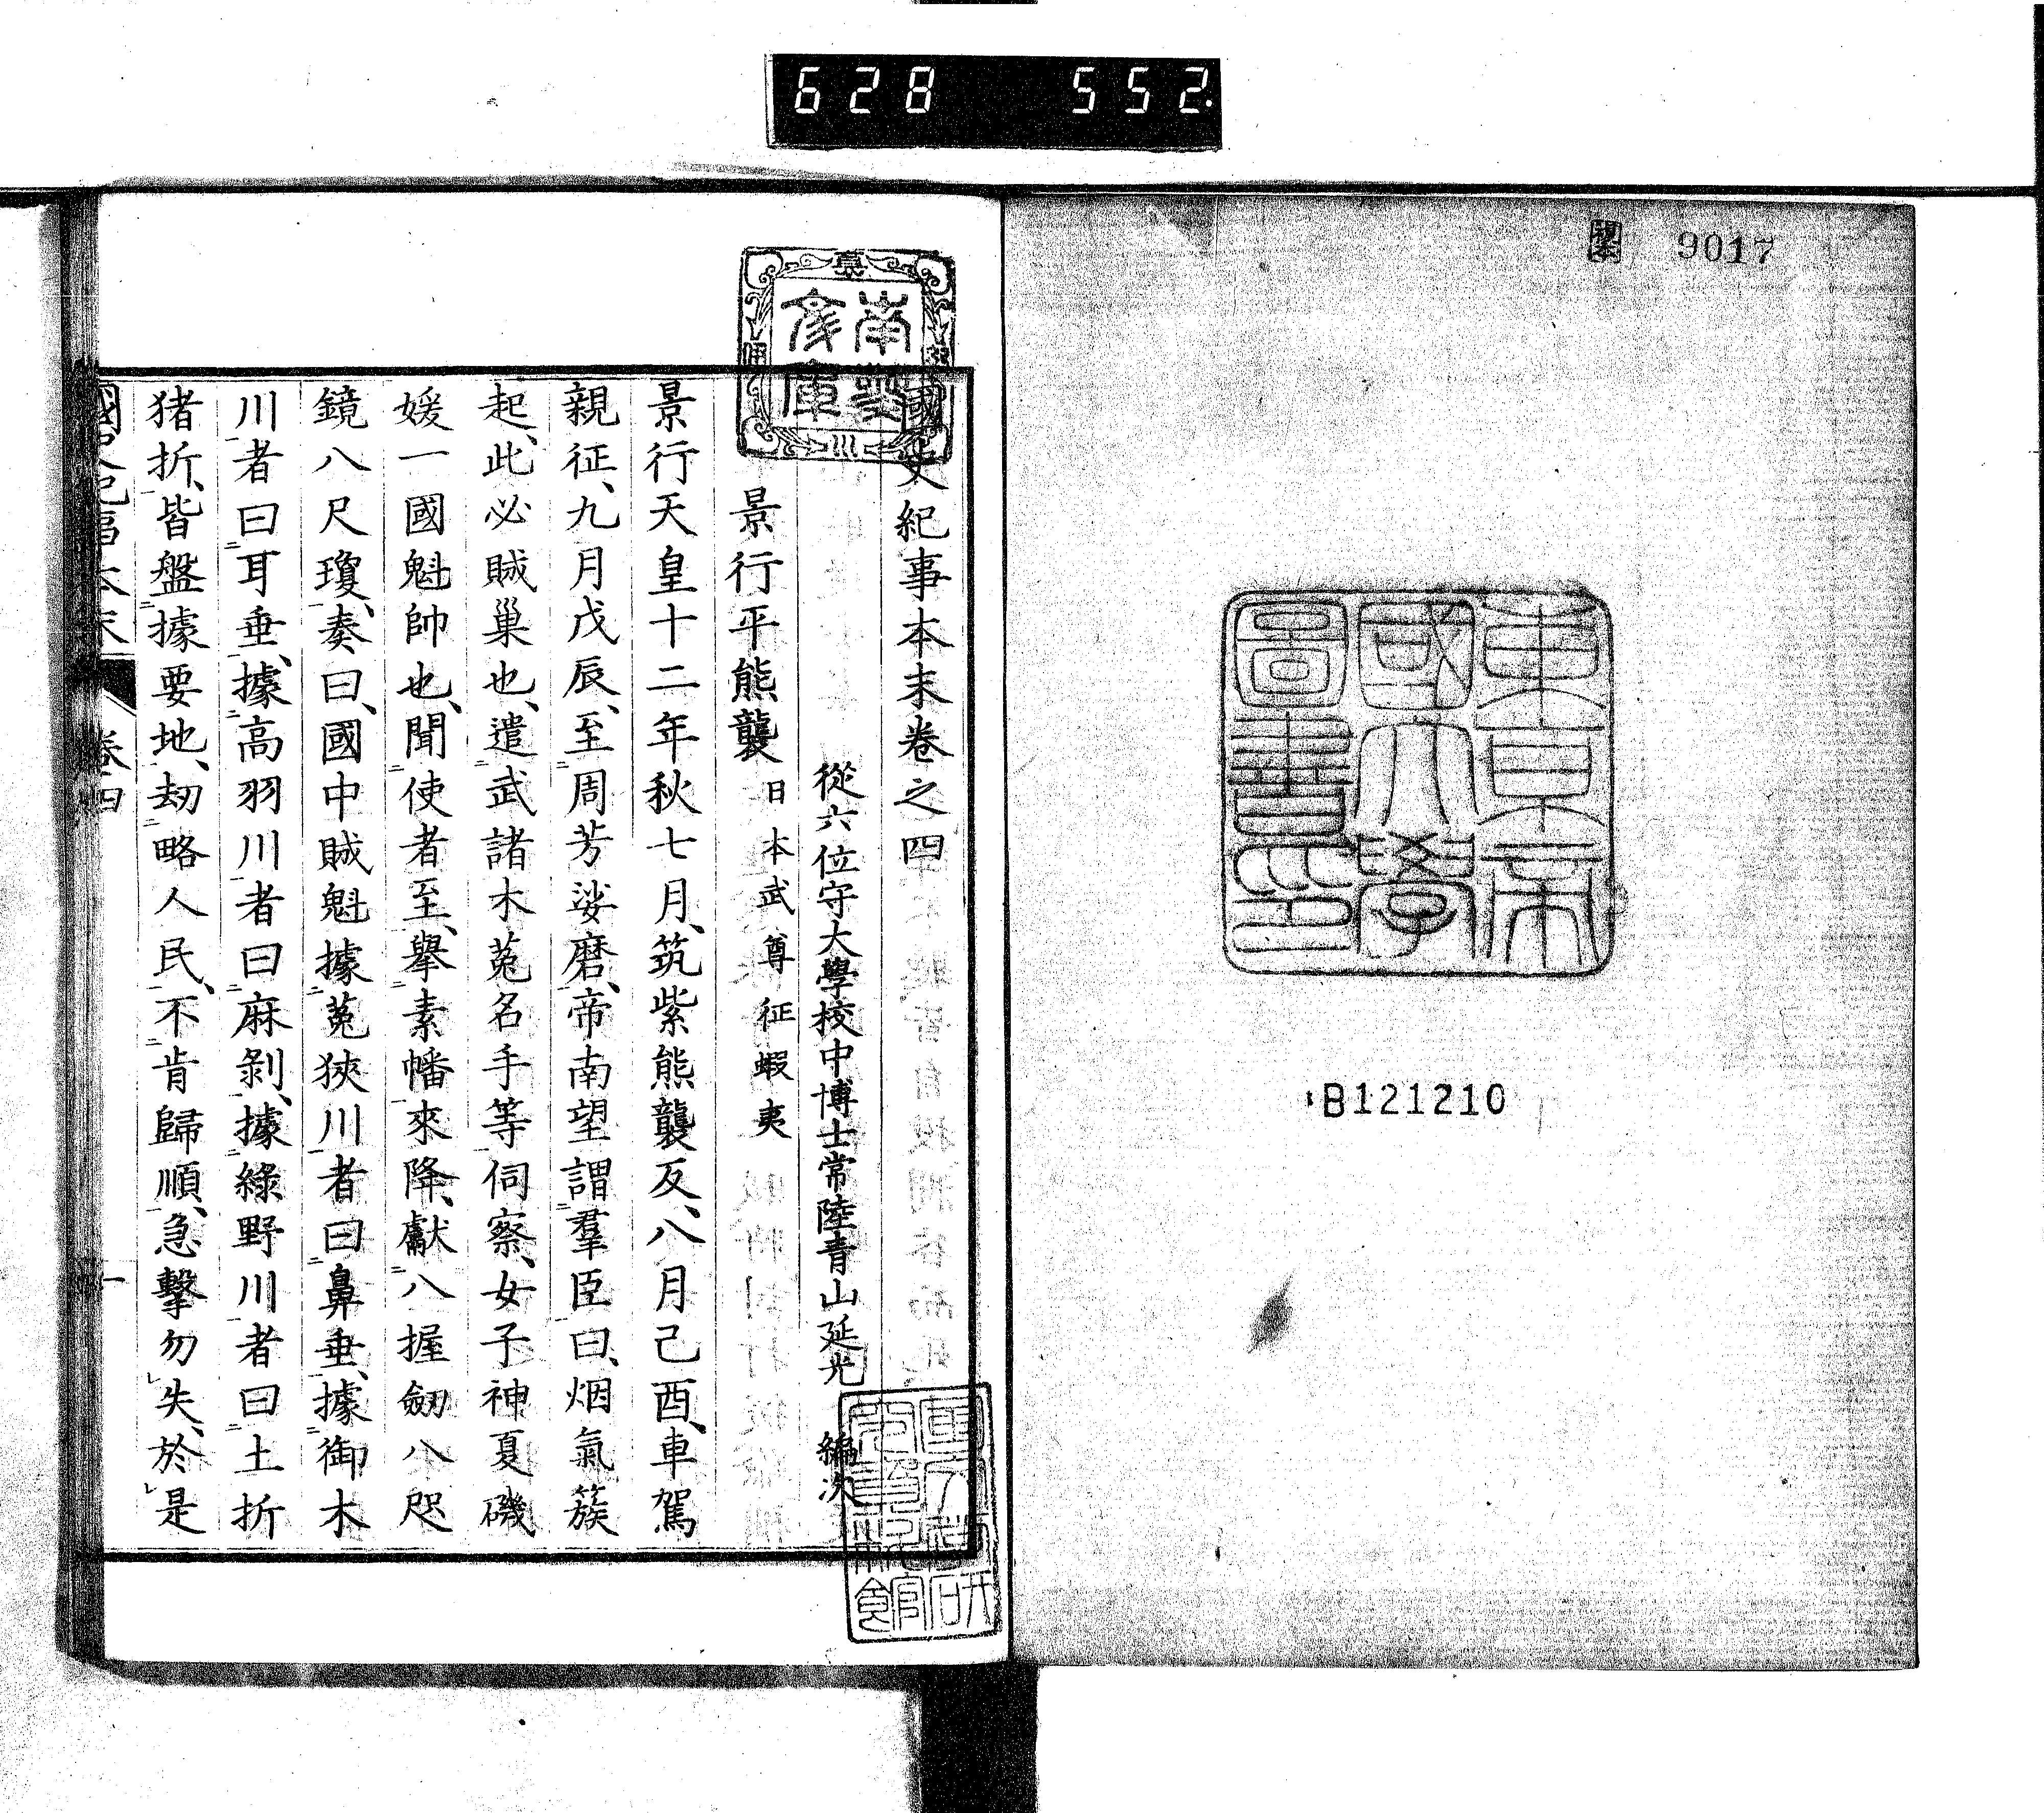 628 552
9017
東京帝
國大學
圖書印
B121210
國史紀事本末卷之四
從六位守大學校中博士常陸青山延光 編次
景行平熊襲 日本武尊征蝦夷
景行天皇十二年秋七月、筑紫熊襲反、八月己酉、車駕
親征、九月戊辰、至周芳娑磨、帝南望謂羣臣曰、烟氣簇
起、此必賊巢也、遣武諸木菟名手等伺察、女子神夏磯
媛一國魁帥也、聞使者至、擧素幡來降、獻八握劒八咫
鏡八尺瓊、奏曰、國中賊魁據菟狹川者曰鼻垂、據御木
川者曰耳垂、據高羽川者曰麻剝、據綠野川者曰土折
猪折、皆盤據要地、刧略人民、不肯歸順、急擊勿失、於是
國史紀事本末 卷四 一